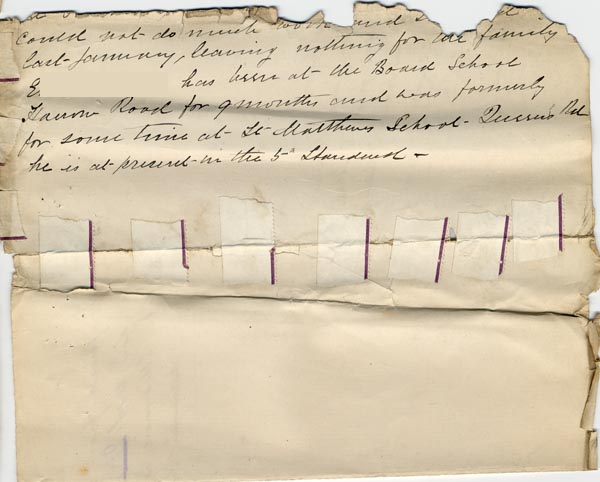 could not do much work and
last January, leaving nothing for the family
E has been at the Board School
Harrow Road for 9 months and was formerly
for some time at St Matthews School - Queens Rd
he is at present in the 5th Standard -